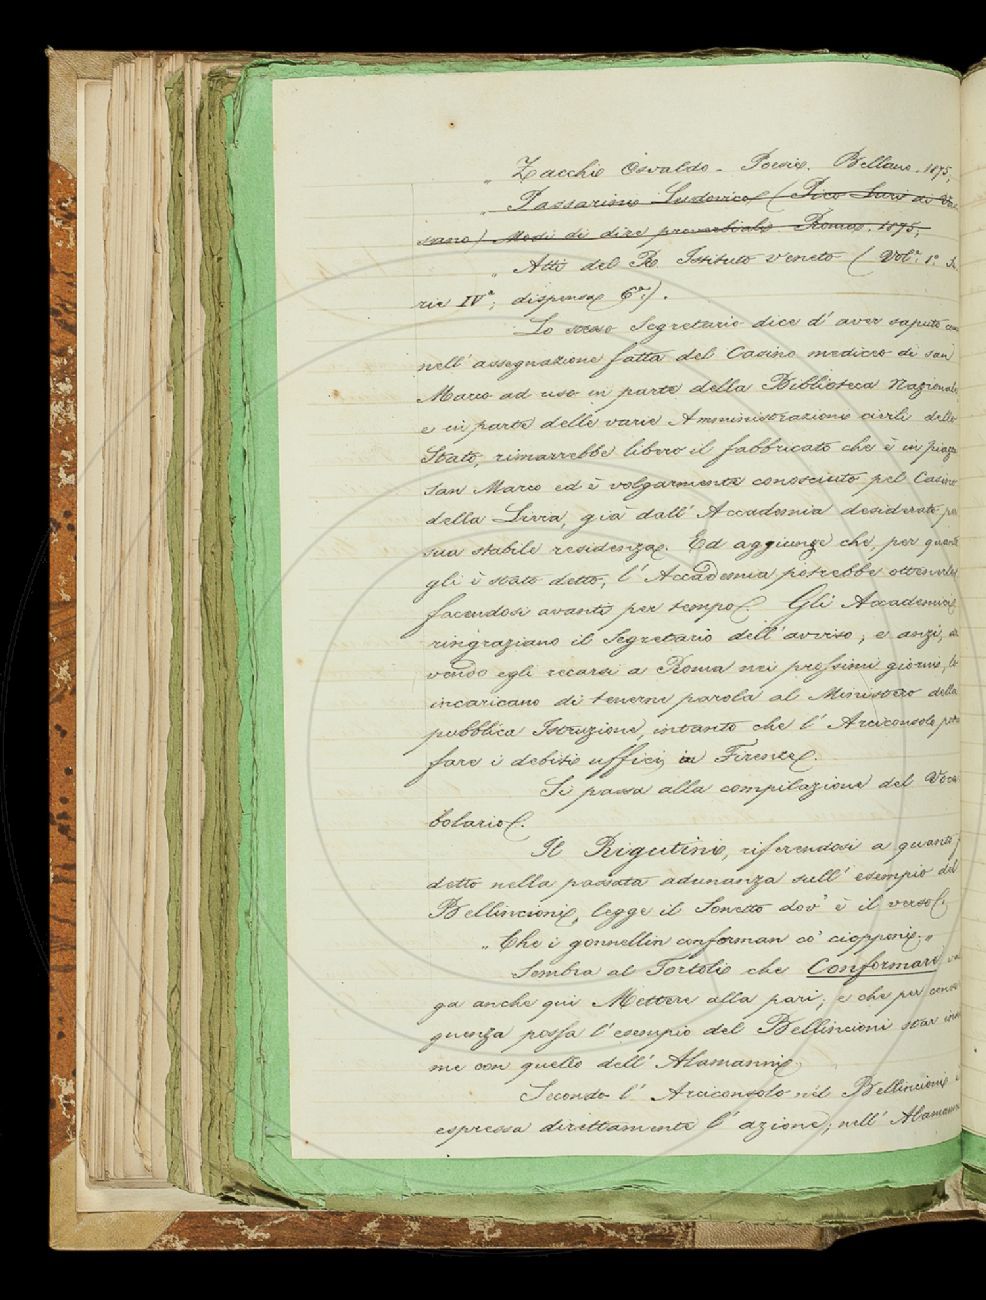 " Zacchi Osvaldo - Poesie. Belluno. 1875;
" Passarini Ludovico (Pico Luri di Vas
sano) Modi di dire proverbiali Roma, 1875;
" Atti del R. Istituto Veneto (Vol.e 1.° Se
rie IV.a; dispensa 6.a).
Lo stesso Segretario dice d'aver saputo come
nell'assegnazione fatta del Casino mediceo di san
Marco ad uso in parte della Biblioteca Nazionale
e in parte delle varie Amministrazioni civili dello
Stato, rimarrebbe libero il fabbricato che è in piazza
san Marco ed è volgarmente conosciuto pel Casino
della Livia, già dall'Accademia desiderato per
sua stabile residenza. Ed aggiunge che, per quanto
gli è stato detto, l'Accademia potrebbe ottenerlo
facendosi avanti per tempo. Gli Accademici
ringraziano il Segretario dell'avviso; e anzi, do
vendo egli recarsi a Roma nei prossimi giorni, lo
incaricano di tenerne parola al Ministero della
pubblica Istruzione, intanto che l'Arciconsolo potrà
fare i debiti uffici in Firenze.
Si passa alla compilazione del Voca
bolario.
Il Rigutini, riferendosi a quanto
detto nella passata adunanza sull'esempio del
Bellincioni, legge il Sonetto dov'è il verso:
"Che i gonnellin conforman co' ciopponi."
Sembra al Tortoli che Conformare val
ga anche qui Mettere alla pari; e che per conse
guenza possa l'esempio del Bellincioni star insie
me con quello dell'Alamanni.
Secondo l'Arciconsolo nel Bellincioni è
espressa direttamente l'azione; nell'Alamanni